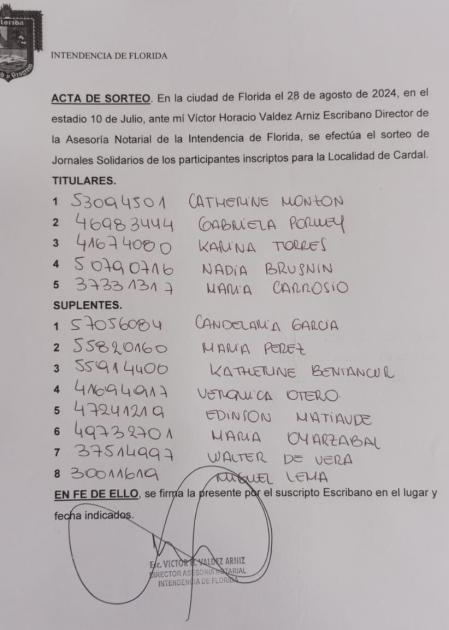 Florida
INTENDENCIA DE FLORIDA
ACTA DE SORTEO. En la ciudad de Florida el 28 de agosto de 2024, en el
estadio 10 de Julio, ante mí Víctor Horacio Valdez Arniz Escribano Director de
la Asesoría Notarial de la Intendencia de Florida, se efectúa el sorteo de
Jornales Solidarios de los participantes inscriptos para la Localidad de Cardal.
TITULARES.
1 53094501 CATHERINE MONZON
2 46983444 GABRIELA
3 41674080 KARINA TORRES
4 50790716 NADIA BRUSNIN
5 37331317 MARIA CARROSIO
SUPLENTES.
1 57056084 CANDELARIA GARCIA
2 55820160 MARIA PEREZ
3 55914400 KATHERINE BENTANCUR
4 41694917 VERONICA OTERO
5 47241219 EDINSON MATIAUDE
6 49732701 MARIA OYARZABAL
7 37514997 WALTER DE VERA
8 30011619 MIGUEL LEMA
EN FE DE ELLO, se firma la presente por el suscripto Escribano en el lugar y
fecha indicados.
Esc. VICTOR H. VALDEZ ARNIZ
DIRECTOR ASESORIA NOTARIAL
INTENDENCIA DE FLORIDA